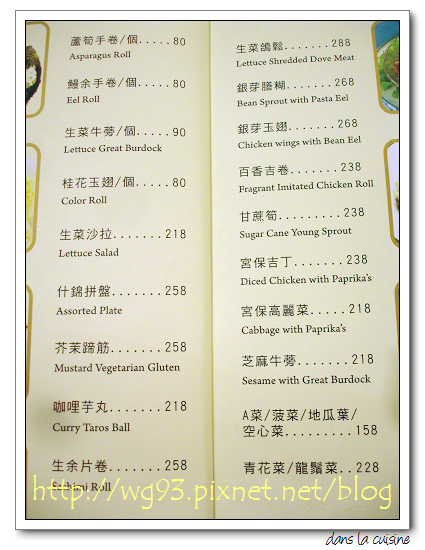 蘆筍手卷/個.....80
Asparagus Roll
鰻余手卷/個.....80
Eel Roll
生菜牛蒡/個.....90
Lettuce Great Burdock
桂花玉翅/個....80
Color Roll
生菜沙拉.......218
Lettuce Salad
什錦拼盤.......258
Assorted Plate
芥茉蹄筋.......258
Mustard Vegetarian Gluten
咖哩芋丸.......218
Curry Taros Ball
生余片卷.......258
Sashimi Roll
生菜鴿鬆.......288
Lettuce Shredded Dove Meat
銀芽膳糊.......268
Bean Sprout with Pasta Eel
銀芽玉翅.......268
Chicken wings with Bean Eel
百香吉卷.......238
Fragrant Imitated Chicken Roll
甘蔗筍.........238
Sugar Cane Young Sprout
宮保吉丁.......238
Diced Chicken with Paprika's
宮保高麗菜.....218
Cabbage with Paprika's
芝麻牛蒡.......218
Sesame with Great Burdock
A菜/菠菜/地瓜葉/
空心菜.........158
青花菜/龍鬚菜..228
http://wg93.pixnet.net/blog
dans la cuisine